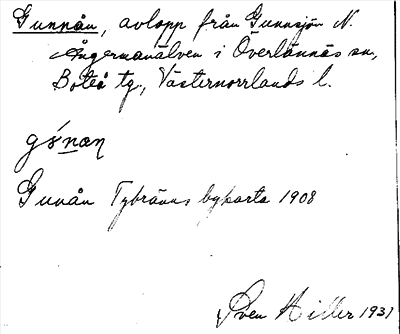 Gunnån, avlopp från Gunnsjön t.
Ångermanälven i Överlännäs sn,
Boteå tg., Västernorrlands l.
Gunån Tybränns bykarta 1908
Sven Hiller 1931